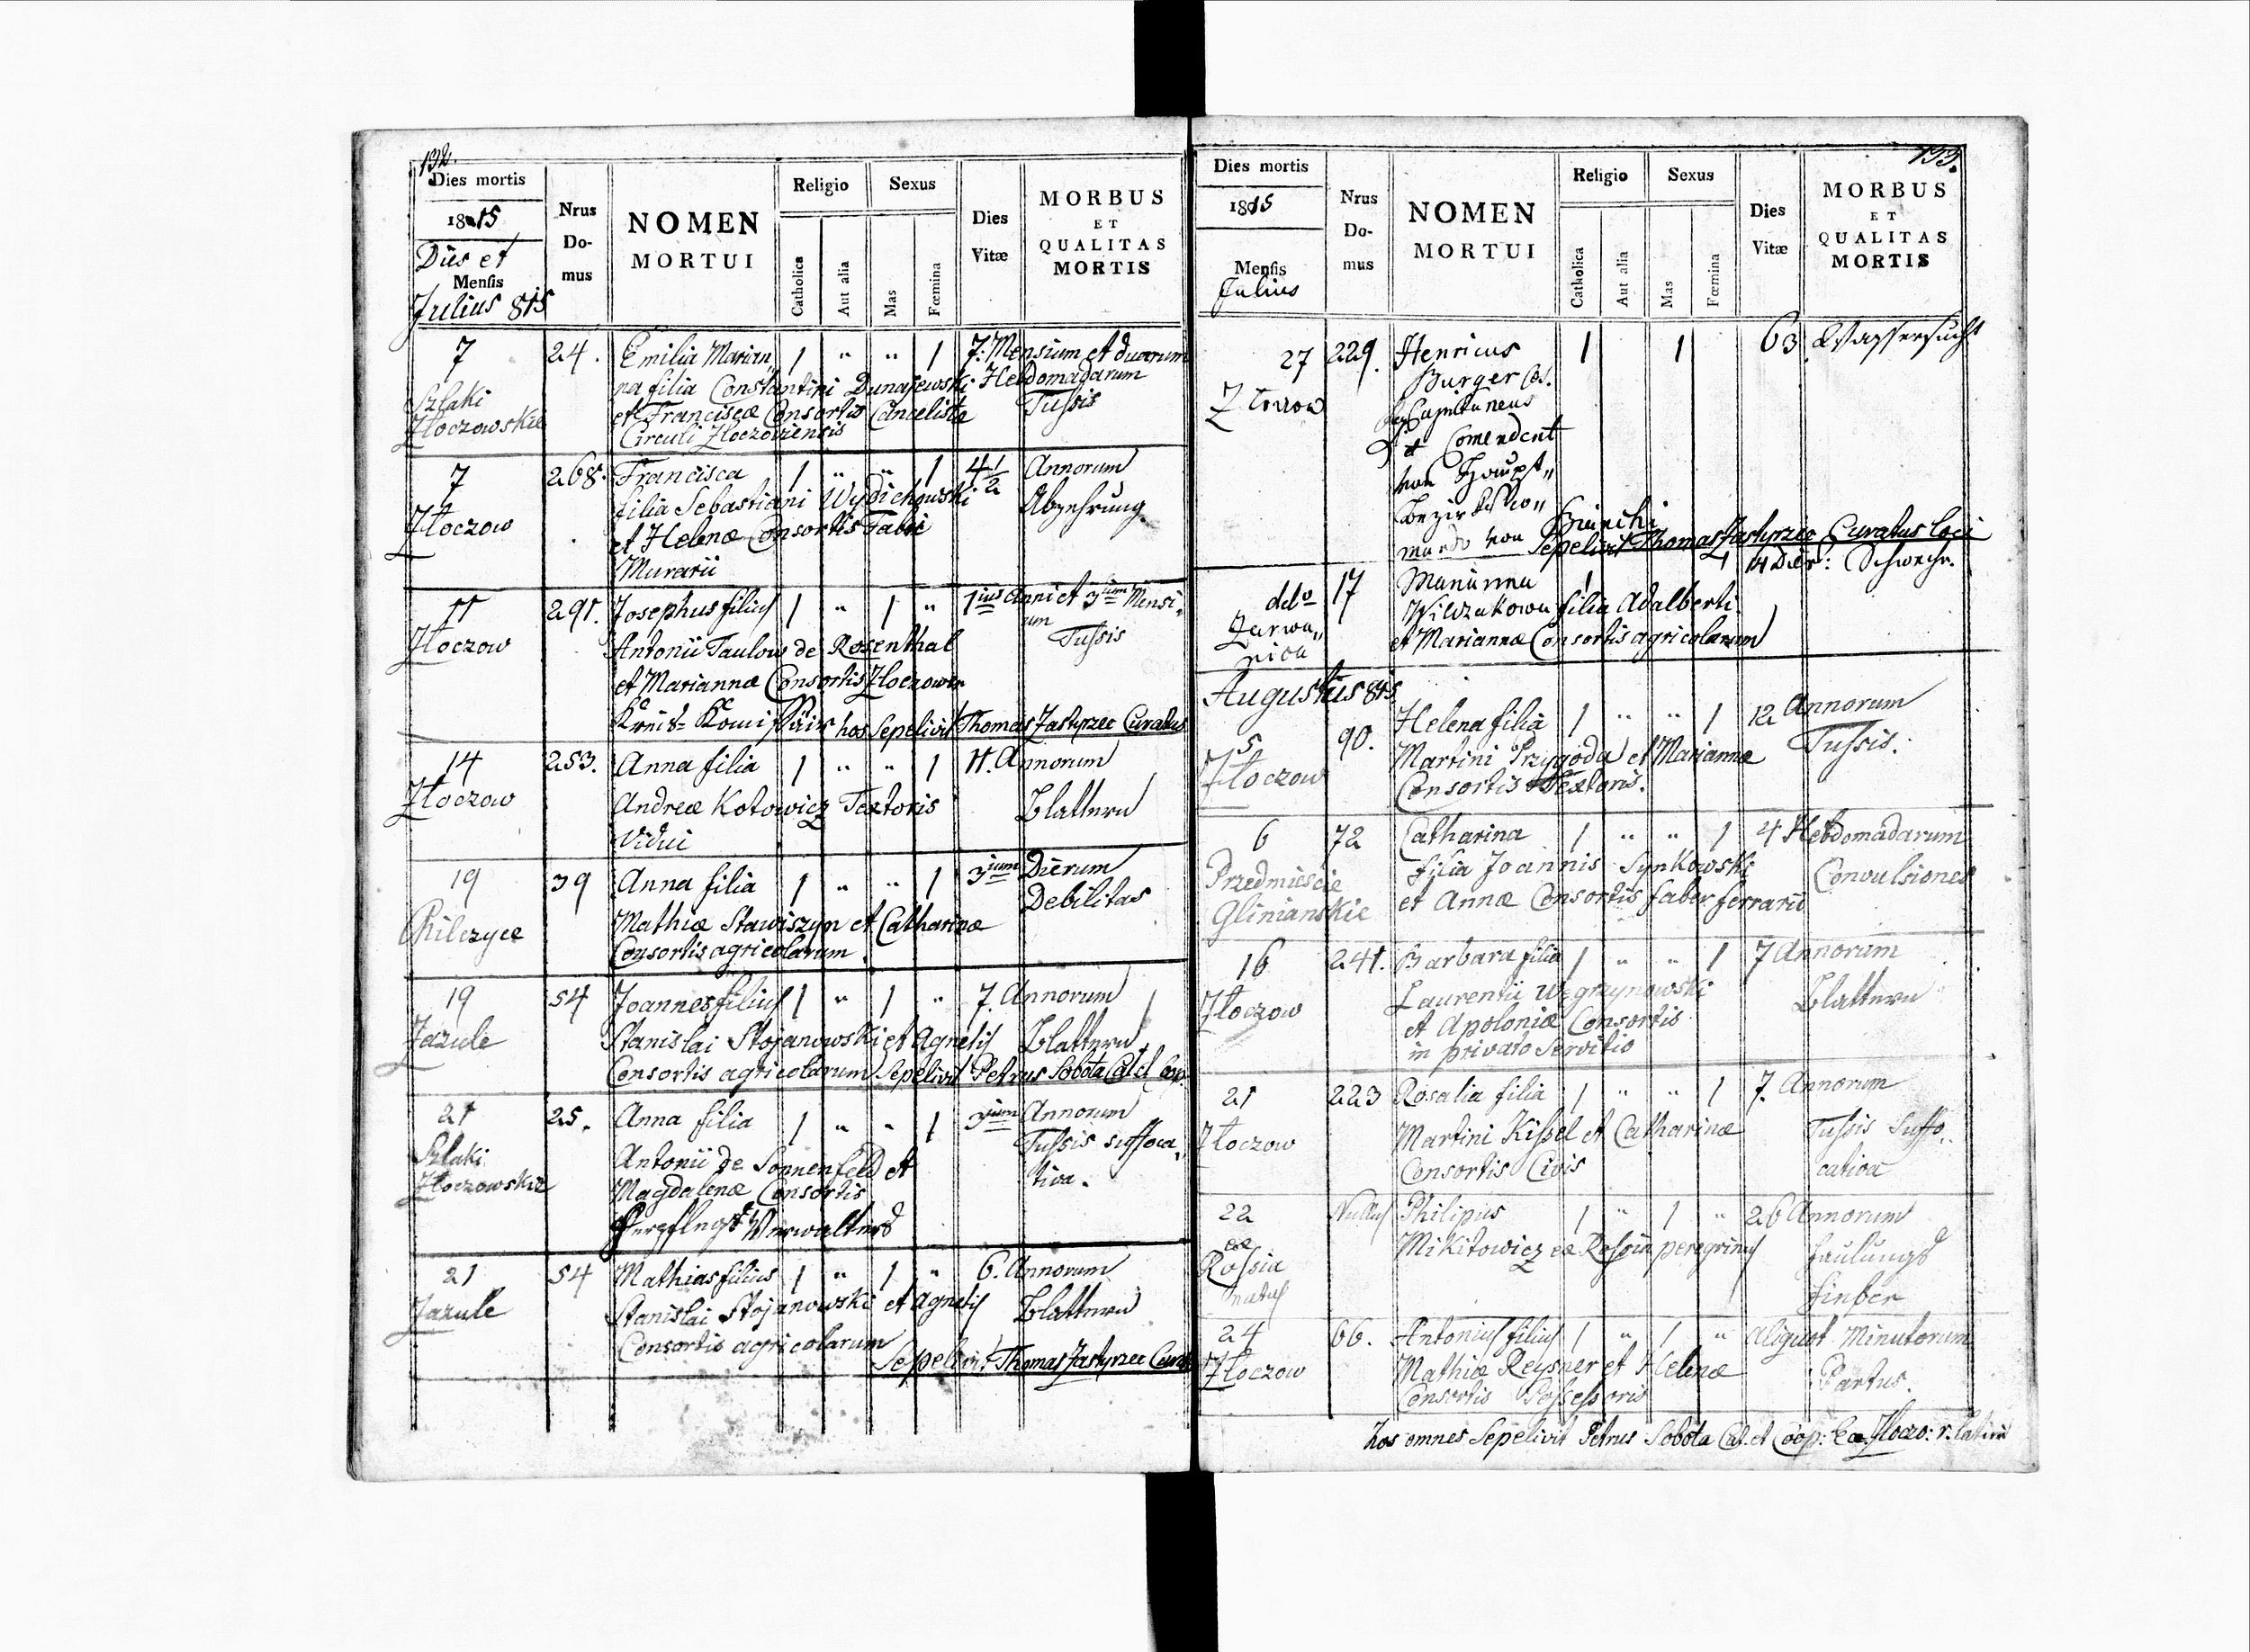 132.
Dies mortis
1815
Dies et
Mensis
Julius 815
Nrus
Do-
mus
NOMEN
MORTUI
Religio
Catholica
Aut alia
Sexus
Mas
Fœmina
Dies
Vitæ
MORBUS
ET
QUALITAS
MORTIS
7 24. Emilia Marian„ 1 „ „ 1 7. Mensium et duarum
Szlaki na filia Constantini Dunajewski Hebdomadarum
Złoczowskie et Franciscæ Consortis Canceliste Tussis
Circuli Zloczoviensis
7 268. Francisca 1 „ „ 1 4 1/2 Annorum
Złoczow filia Sebastiani Wydichowski Abzehrung
et Helenæ Consortis Fabri
Murarii
11 291. Josephus filius 1 „ 1 „ 1ius Anni et 3ium Mensi„
um
Złoczow Antonii Taulow de Rosenthal Tussis
et Mariannæ Consortis Złoczower
Kreis- Komissairs hos Sepelivit Thomas Jastrzec Curatus
14 253. Anna filia 1 „ „ 1 11. Annorum
Złoczow Andreæ Kotowicz Textoris Blattern
Vidui
19 39 Anna filia 1 „ „ 1 3ium Dierum
Chilczyce Mathiæ Stawiszyn et Catharinæ Debilitas
Consortis agricolarum
19 54 Joannes filius 1 „ 1 „ 7. Annorum
Zazule Stanislai Stojanowski et Agnetis Blattern
Consortis agricolarum Sepelivit Petrus Sobota Cat et Coop.
21 25. Anna filia 1 „ „ 1 3ium Annorum
Szlaki Antonii de Sonnenfeld et Tussis suffoca„
Złoczowskie Magdalenæ Consortis tiva.
Verpflegs Verwalters
21 54 Mathias filius 1 „ 1 „ 6. Annorum
Zazule Stanislai Stojanowski et Agnetis Blattern
Consortis agricolarum
Sepelivit Thomas Jastrzec Curat
133.
Dies mortis
1815
Mensis
Julius
Nrus
Do-
mus
NOMEN
MORTUI
Religio
Catholica
Aut alia
Sexus
Mas
Fœmina
Dies
Vitæ
MORBUS
ET
QUALITAS
MORTIS
27 229. Henricus 1 1 63 Wassersucht
Złoczow Burger
Capitaneus
et Comendent
von Haupt„
Bezirks Ko„
mando von Bianchi
Sepelivit Thomas Jastrzec Curatus Loci
detto 17 Marianna 1 1 14 Dier: Schwäche
Zarwa„ Wilczakowa filia Adalberti
nica et Mariannæ Consortis agricolarum
Augustus 815
5 90. Helena filia 1 „ „ 1 12 Annorum
Złoczow Martini Przygoda et Mariannæ Tussis.
Consortis Textoris.
6 72 Catharina 1 „ „ 1 4 Hebdomadarum
Przedmieście filia Joannis Synkowski Convulsiones
Glinianskie et Annæ Consortis faber ferrarii
16 241. Barbara filia 1 „ „ 1 7 Annorum
Złoczow Laurentii Węgrzynowski Blattern
et Apoloniæ Consortis
in privato Servitio
21 223 Rosalia filia 1 „ „ 1 7. Annorum
Złoczow Martini Kissel et Catharinæ Tussis Suffo„
Consortis Civis cativa
22 Nullus Philipus 1 „ 1 „ 26 Annorum
ex Mikitowicz ex Rossia peregrinus Faulungs
Rossia Fieber
natus
24 66. Antonius filius 1 „ 1 „ aliquot Minutorum
Złoczow Mathiæ Reysner et Helenæ Partus.
Consortis Possessoris
hos omnes Sepelivit Petrus Sobota Cat. et Coop: Ecc. Złocz: r. latini